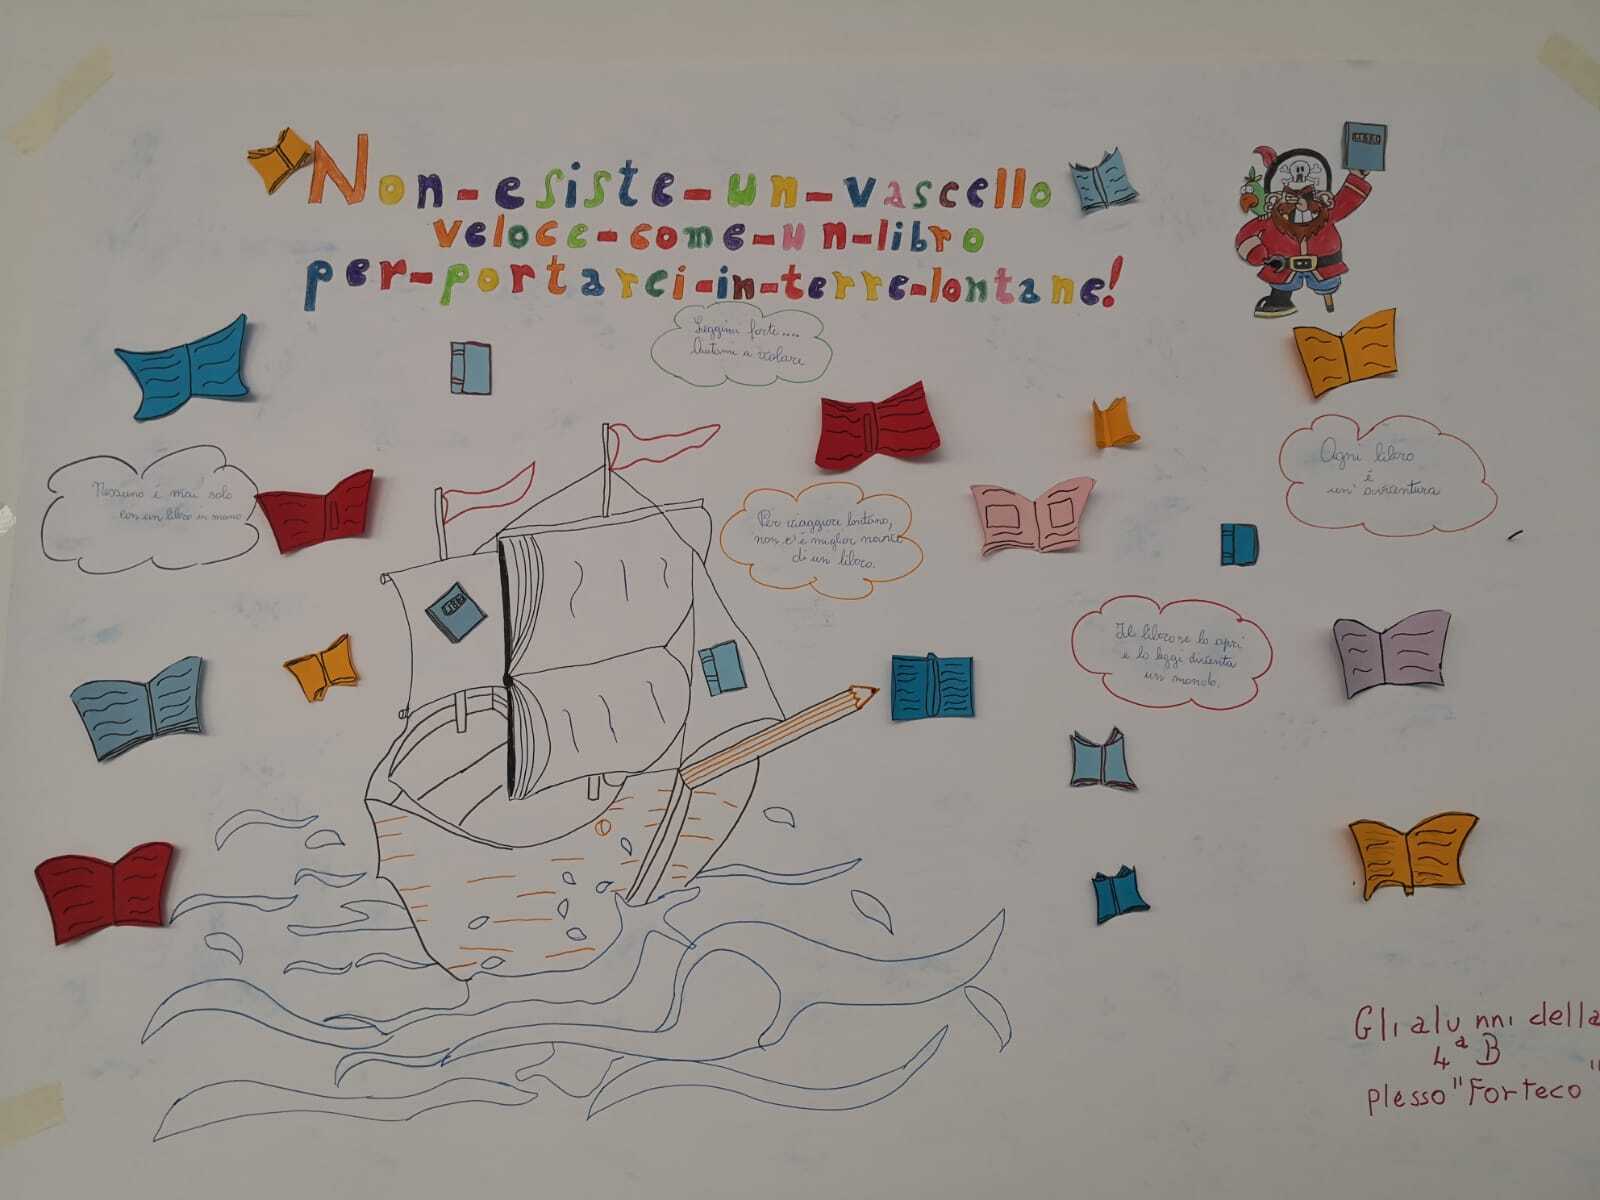 Non-esiste-un-vascello
veloce-come-un-libro
per-portarci-in-terre-lontane!
LIBRI
Leggimi forte....
Aiutami a volare
Nessuno é mai solo
con un libro in mano
Ogni libro
é
un' avventura
Per viaggiare lontano,
non c'é miglior nave
di un libro.
Il libro se lo apri
e lo leggi diventa
un mondo.
Gli alunni della
4ª B
plesso "Forteco"